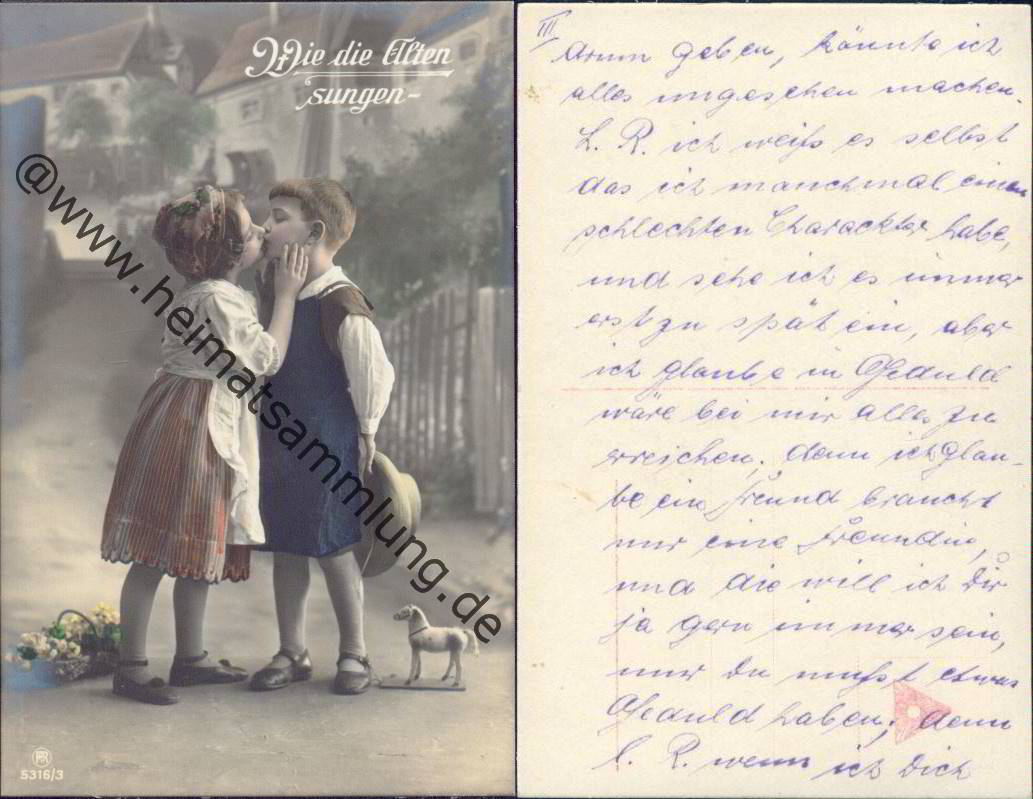 Wie die Alten
sungen-
@www.heimatsammlung.de
5316/3
III
drum geben, könnte ich
alles ungesehen machen.
L. R. ich weiß es selbst
das ich manchmal einen
schlechten Charackter habe,
und sehe ich es immer
erst zu spät ein, aber
ich glaube in Geduld
wäre bei mir alles zu
erreichen, denn ich glau-
be ein Freund braucht
nur eine Freundin,
und die will ich Dir
ja gern immer sein,
nur Du mußt etwas
Geduld haben, denn
l. R. wenn ich Dich